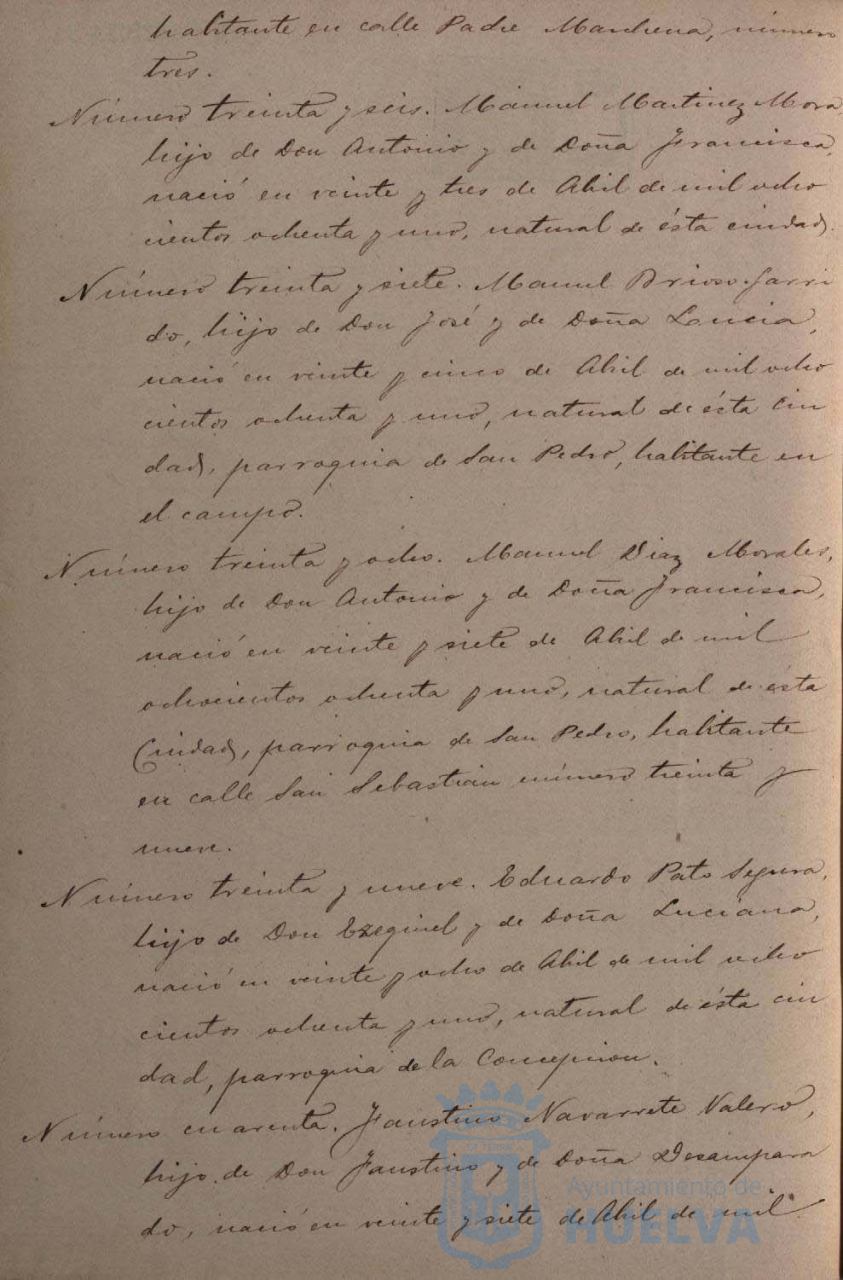 habitante en calle Padre Marchena, número
tres.
Número treinta y seis. Manuel Martinez Mora
hijo de Don Antonio y de Doña Francisca,
nació en veinte y tres de Abril de mil ocho
cientos ochenta y uno, natural de ésta ciudad.
Número treinta y siete. Manuel Brioso Garri
do, hijo de Don José y de Doña Lucia,
nació en veinte y cinco de Abril de mil ocho
cientos ochenta y uno, natural de ésta ciu
dad, parroquia de San Pedro, habitante en
el campo.
Número treinta y ocho. Manuel Diaz Morales,
hijo de Don Antonio y de Doña Francisca,
nació en veinte y siete de Abril de mil
ochocientos ochenta y uno, natural de ésta
Ciudad, parroquia de San Pedro, habitante
en calle San Sebastián número treinta y
nueve.
Número treinta y nueve. Eduardo Pato Segura,
hijo de Don Ezequiel y de Doña Luciana,
nació en veinte y ocho de Abril de mil ocho
cientos ochenta y uno, natural de ésta ciu
dad, parroquia de la Concepcion.
Número cuarenta. Faustino Navarrete Valero,
hijo de Don Faustino y de Doña Desampara
do, nació en veinte y siete de Abril de mil
Ayuntamiento de
HUELVA